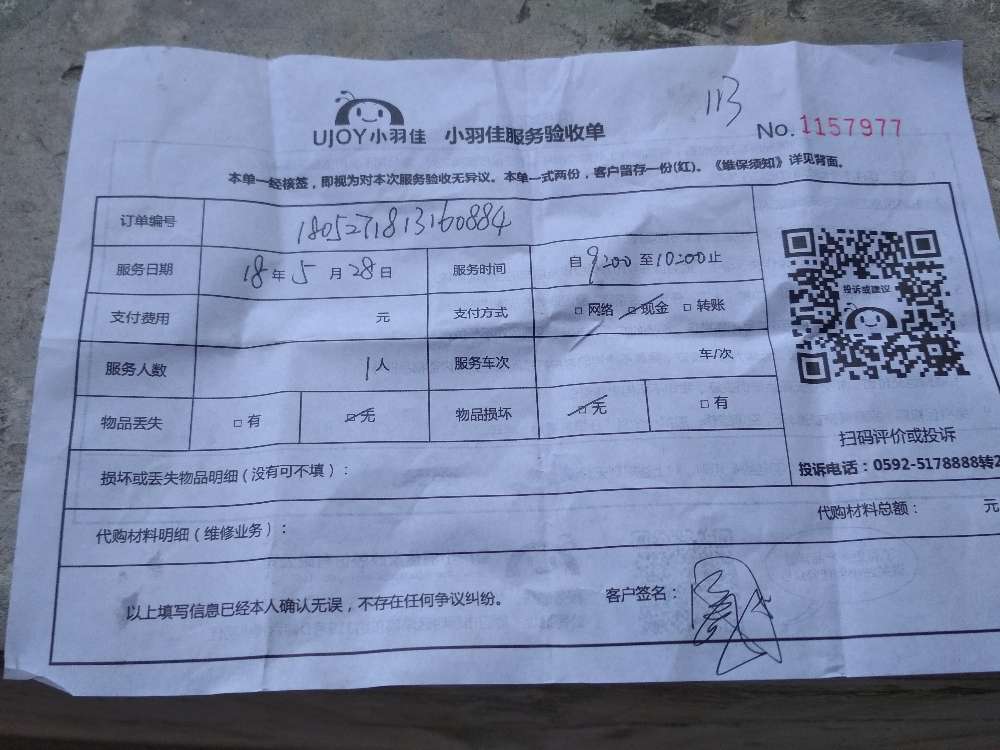 113
UJOY小羽佳 小羽佳服务验收单 No. 1157977
本单一经核签，即视为对本次服务验收无异议。本单一式两份，客户留存一份(红)。《维保须知》详见背面。
订单编号 1805271813160884
服务日期 18年5月28日 服务时间 自9:00至10:00止
支付费用 元 支付方式 □网络 □现金 □转账
服务人数 1人 服务车次 车/次
物品丢失 □有 □无 物品损坏 □无 □有
投诉或建议
扫码评价或投诉
投诉电话：0592-5178888转2
损坏或丢失物品明细（没有可不填）：
代购材料明细（维修业务）： 代购材料总额： 元
以上填写信息已经本人确认无误，不存在任何争议纠纷。 客户签名：